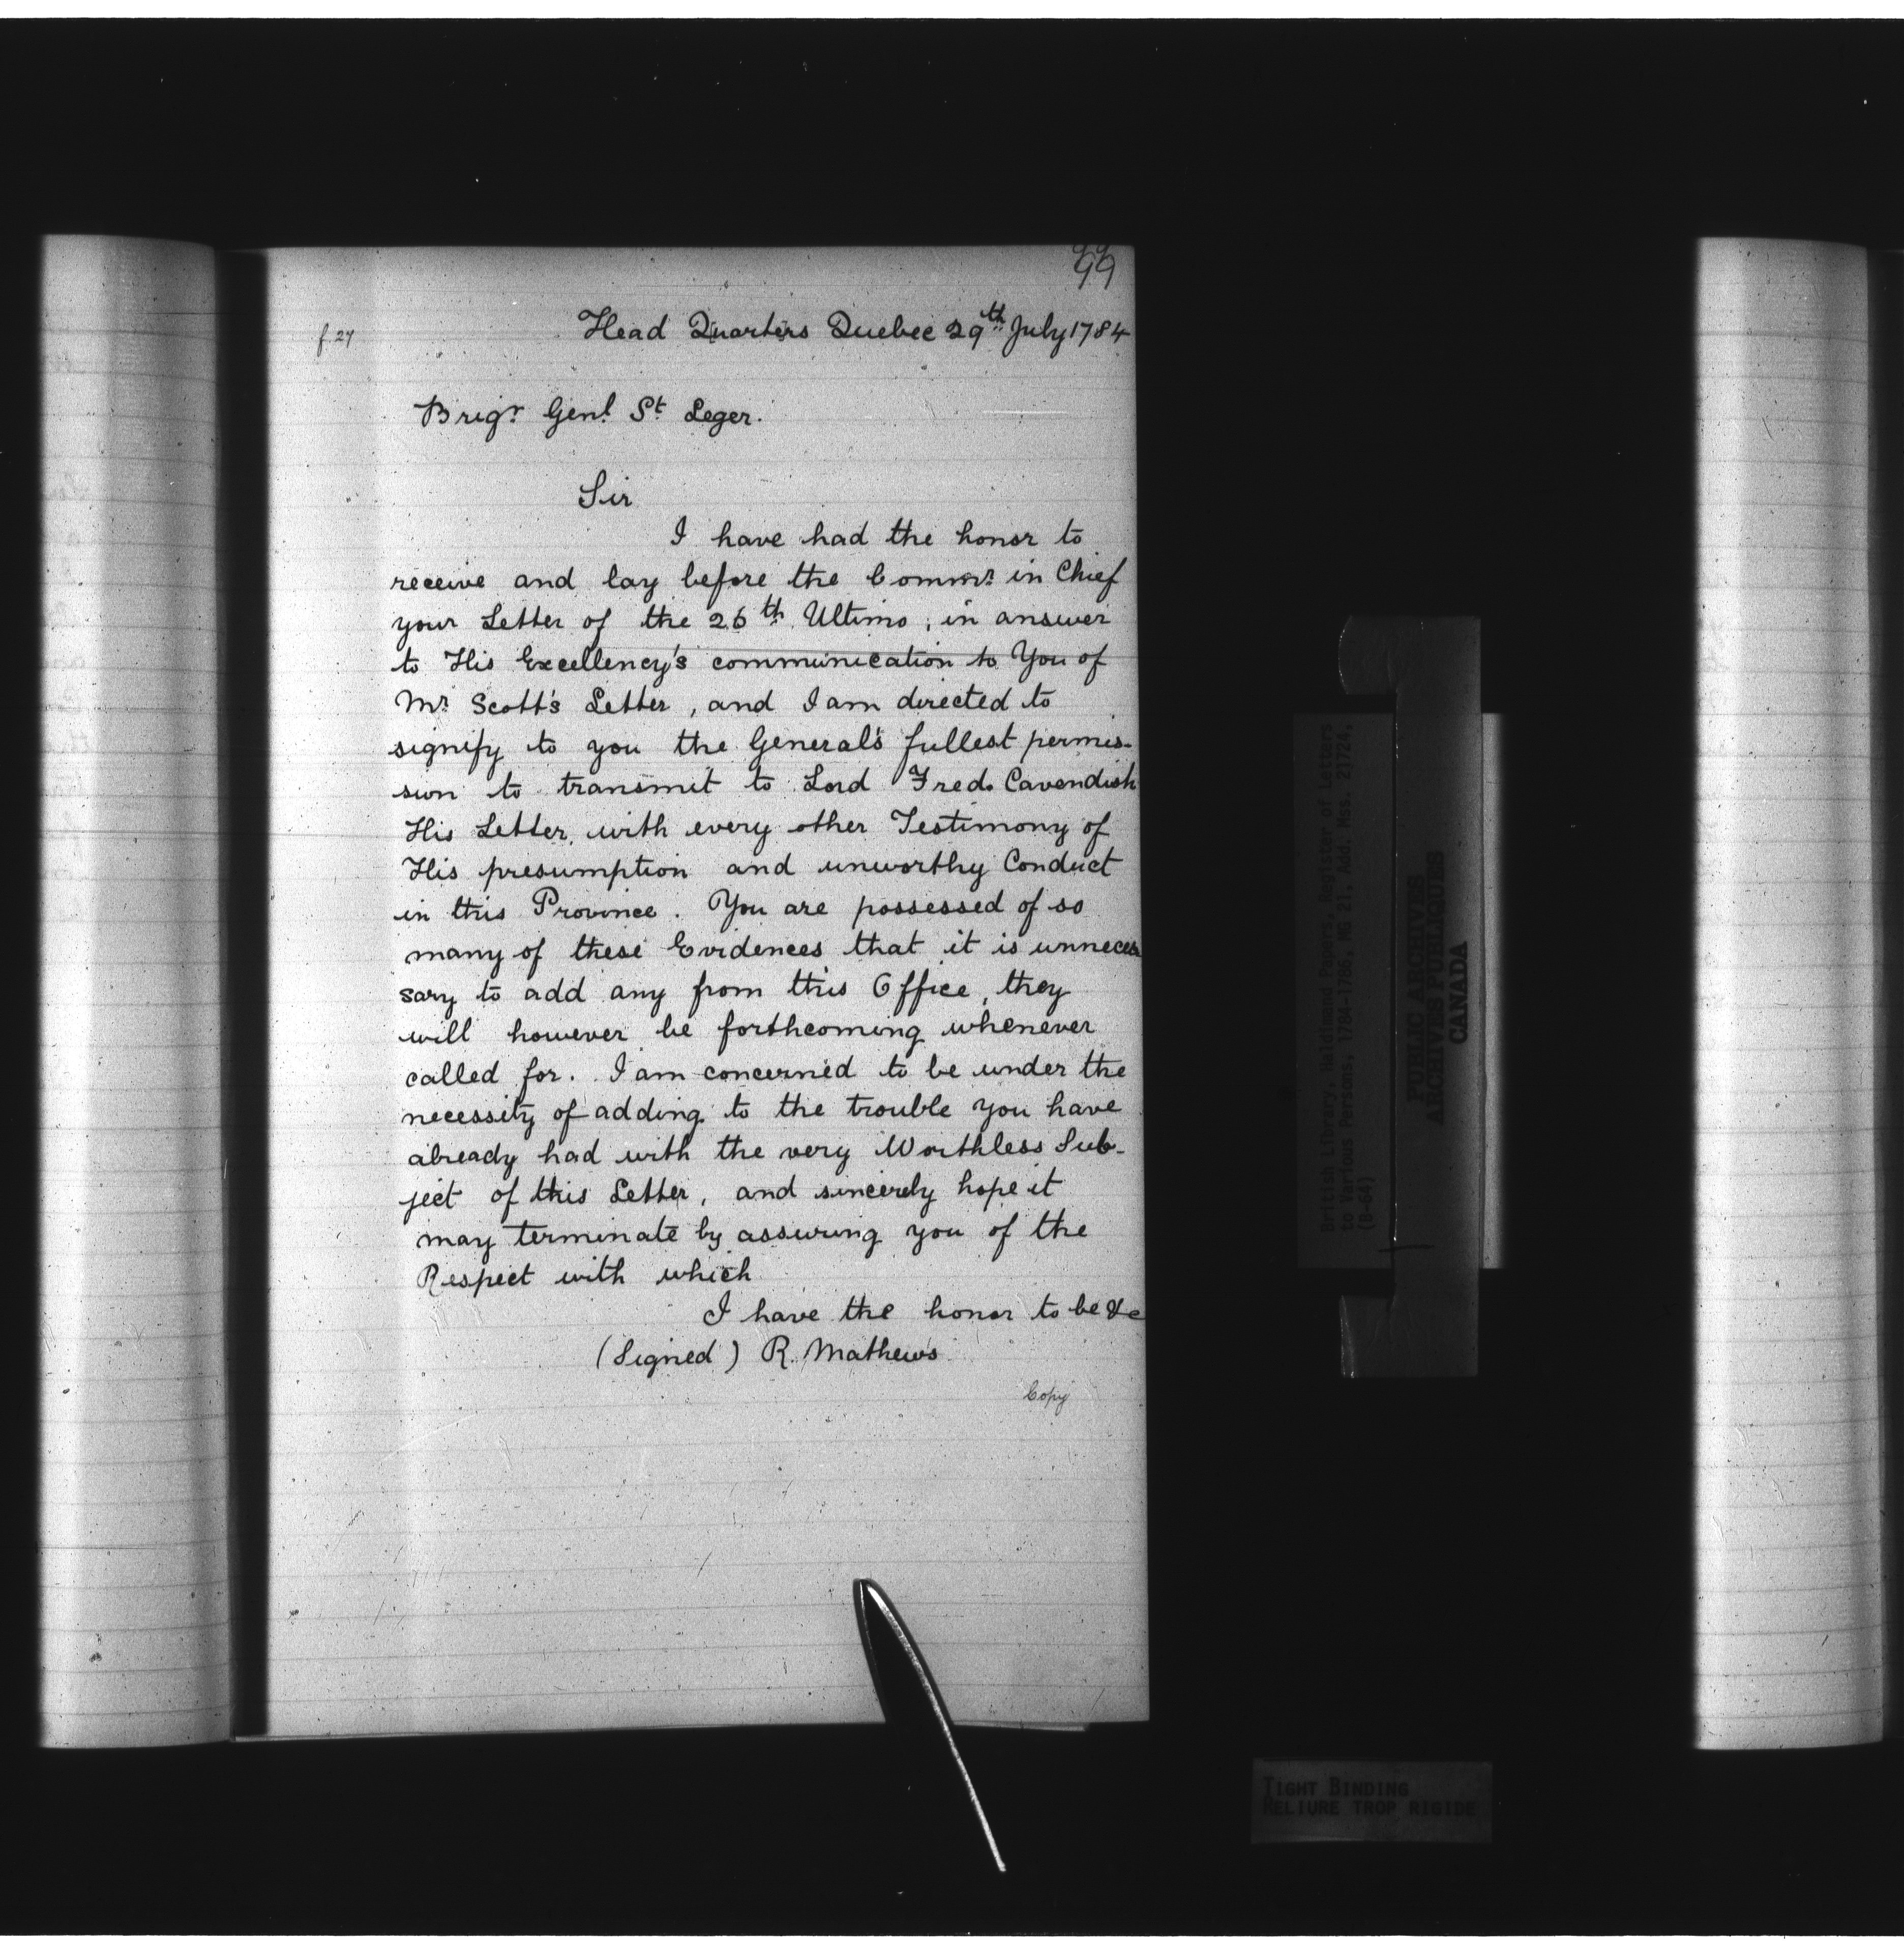 99
f. 27
Head Quarters Quebec 29th July 1784
Brigr Genl St Leger.
Sir
I have had the honor to
receive and lay before the Commr in Chief
your Letter of the 26th Ultimo, in answer
to His Excellency's communication to You of
Mr Scott's Letter, and I am directed to
signify to you the General's fullest permis-
sion to transmit to Lord Fred. Cavendish
His Letter, with every other Testimony of
His presumption and unworthy Conduct
in this Province. You are possessed of so
many of these Evidences that it is unneces
sary to add any from this Office, they
will however be forthcoming whenever
called for. I am concerned to be under the
necessity of adding to the trouble you have
already had with the very Worthless Sub-
ject of this Letter, and sincerely hope it
may terminate by assuring you of the
Respect with which
I have the honor to be &c
(Signed) R. Mathews
Copy
British Library, Haldimand Papers, Register of Letters
to Various Persons, 1784-1786, MG 21, Add. Mss. 21724,
(B-64)
PUBLIC ARCHIVES
ARCHIVES PUBLIQUES
CANADA
TIGHT BINDING
RELIURE TROP RIGIDE